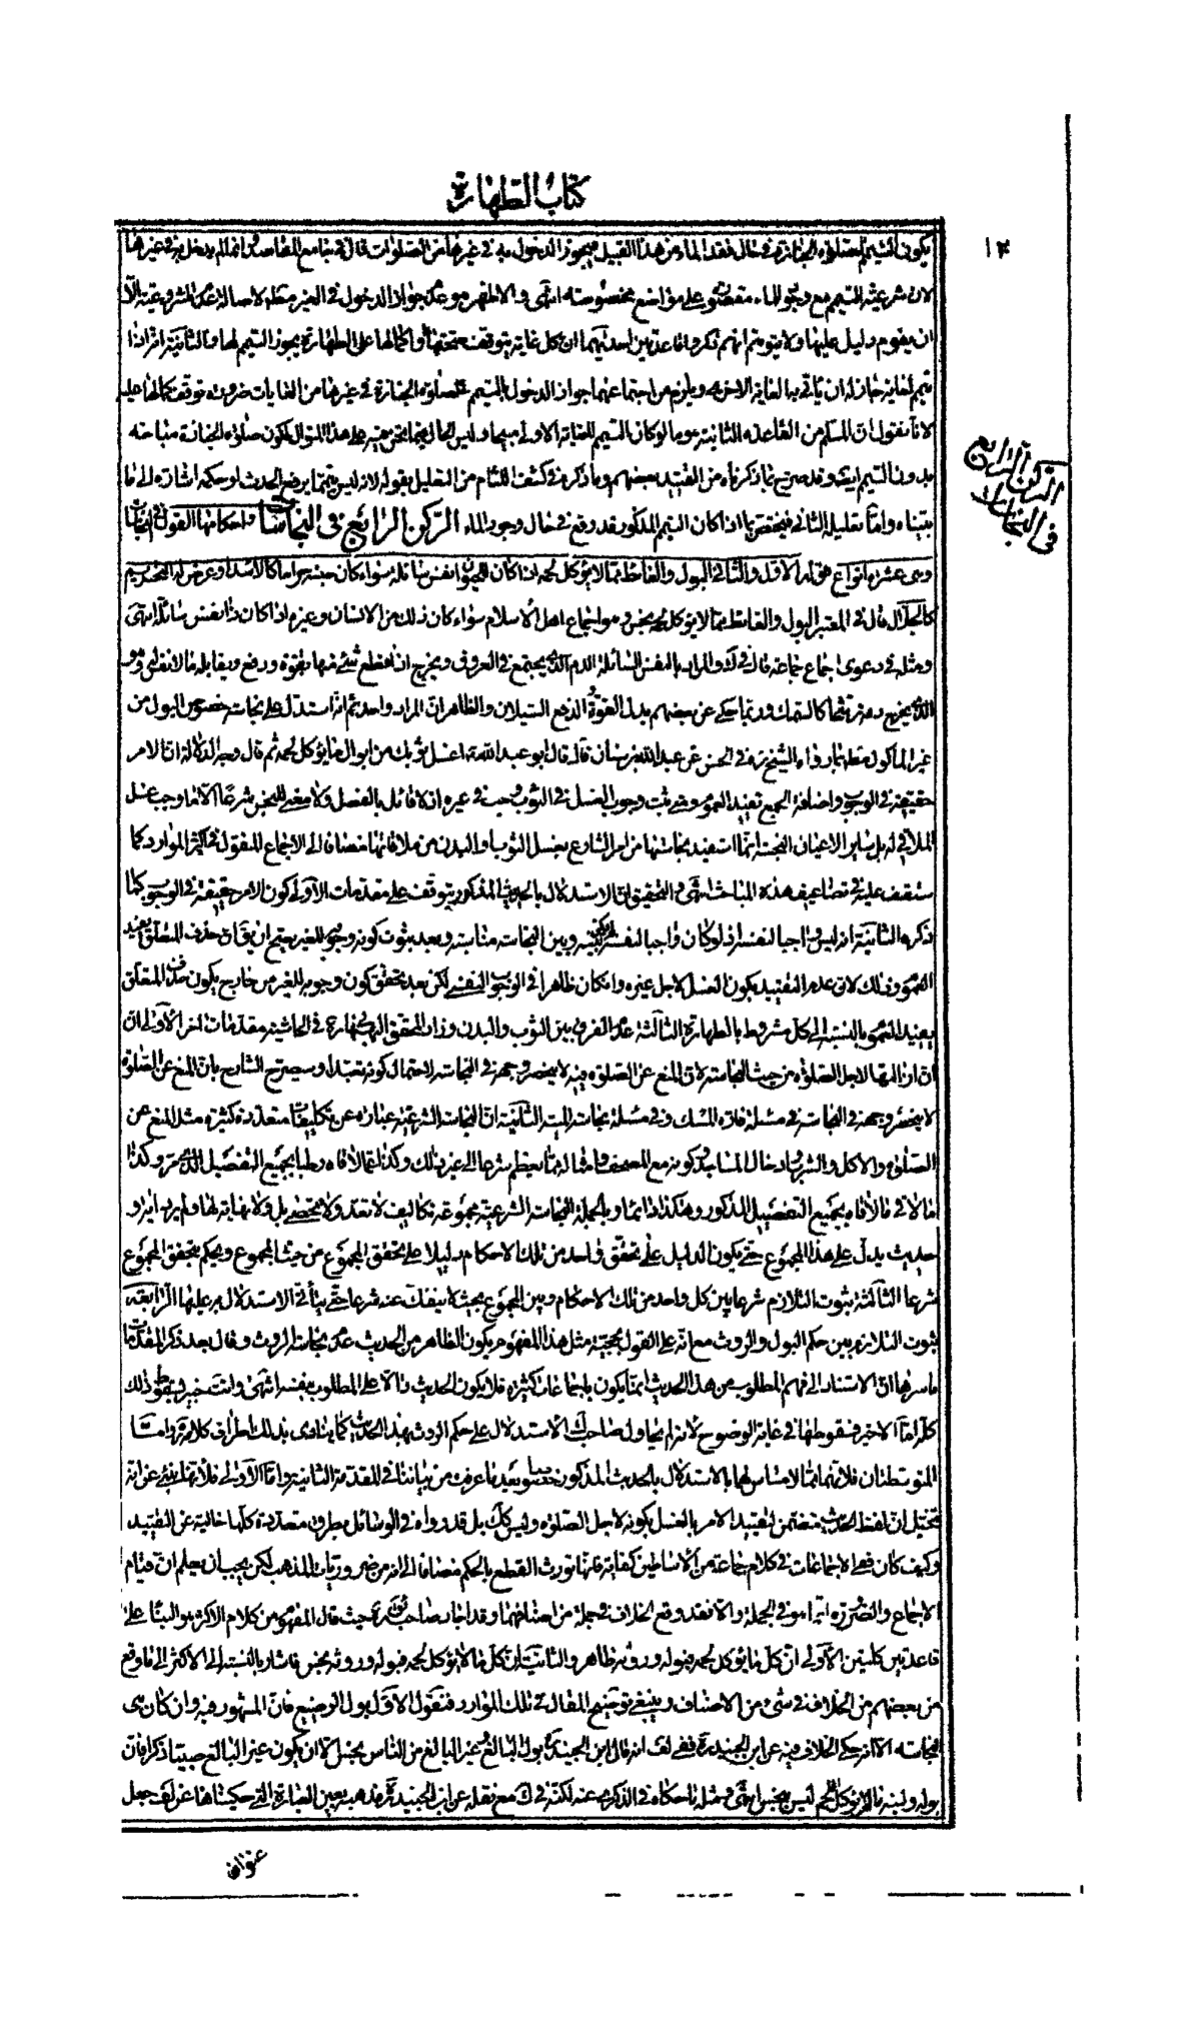 كتاب الطهارة
يكون التيمم لصلوة الجنازة في حال فقد الماء من هذا القبيل فيجوز الدخول به في غيرها من الصلوات قال في جامع المقاصد وانما لم يدخل به في غيرها
لان شرعية التيمم مع وجود الماء مقصور على مواضع مخصوصة انتهى والاظهر هو عدم جواز الدخول في الغير مطلقا لاصالة عدم المشروعية الا
ان يقوم دليل عليها ولا يتوهم انهم ذكروا قاعدتين احديهما ان كل غاية يتوقف صحتها او كمالها على الطهارة يجوز التيمم لها والثانية انه اذا
تيمم لغاية جاز له ان يأتي بها لغاية الاخرى ويلزم من اجتماعهما جواز الدخول بالتيمم لصلوة الجنازة في غيرها من الغايات ضرورة توقف كمالها عليه
لانا نقول ان المسلم من القاعدة الثانية هو ما لو كان التيمم للغاية الاولى مبيحا وليس الحال فيما نحن فيه على هذا المنوال لكون صلوة الجنازة مباحة
بدون التيمم ايضا وقد صرح بما ذكرناه من التقييد بعضهم وما ذكره في كشف اللثام من التعليل بقوله لانه ليس تيمما يرفع الحدث او حكمه اشارة الى ما
بيناه واما تعليله الثاني فيختص بما اذا كان التيمم المذكور قد وقع في حال وجود الماء الركن الرابع في النجاسات واحكامها القول في النجاسات
وهي عشرة انواع قوله الاول والثاني البول والغائط مما لا يؤكل لحمه اذا كان للحيوان نفس سائلة سواء كان جنسه حراما كالاسد او عرض له التحريم
كالجلال قال في المعتبر البول والغائط مما لا يؤكل لحمه نجس وهو اجماع اهل الاسلام سواء كان ذلك من الانسان وغيره اذا كان ذا نفس سائلة انتهى
ومثله في دعوى اجماع جماعة قال في لك والمراد بالنفس السائلة الدم الذي يجتمع في العروق ويخرج اذا قطع شيء منها بقوة ودفع ويقابله ما لا نفس له وهو
الذي يخرج دمه ترشحا كالسمك وربما حكى عن بعضهم بدل القوة والدفع السيلان والظاهر ان المراد واحد ثم انه استدل على نجاسة خصوص البول من
غير المأكول مطلقا بما رواه الشيخ ره في الحسن عن عبد الله بن سنان قال قال ابو عبد الله اغسل ثوبك من ابوال ما لا يؤكل لحمه ثم قال وجه الدلالة ان الامر
حقيقة في الوجوب واضافة الجمع تفيد العموم ومتى ثبت وجوب الغسل في الثوب وجب في غيره اذ لا قائل بالفصل ولا معنى للنجس شرعا الا ما وجب غسل
الملاقي له بل سائر الاعيان النجسة انما استفيد نجاستها من امر الشارع بغسل الثوب او البدن من ملاقاتها مضافا الى الاجماع المنقول في اكثر الموارد كما
ستقف عليه في تضاعيف هذه المباحث انتهى والتحقيق ان الاستدلال بالحديث المذكور يتوقف على مقدمات الاولى كون الامر حقيقة في الوجوب كما
ذكره الثانية انه ليس واجبا لنفسه اذ لو كان واجبا لنفسه لم يكن بينه وبين النجاسة مثابتة وبعد ثبوت كونه وجوبه للغير يصح ان يق ان حذف المتعلق يفيد
العموم وذلك لان عدم التقييد بكون الغسل لاجل غيره وان كان ظاهرا في الوجوب النفسي لكن بعد تحقق كون وجوبه للغير من خارج يكون حذف المتعلق
يفيد العموم بالنسبة الى كل مشروط بالطهارة الثالثة عدم الفرق بين الثوب والبدن وزاد المحقق البهبهاني في الحاشية مقدمات اخر الاولى ان
لا ينحصر وجهه في النجاسة في مسئلة فارة المسك وفي مسئلة نجاسة الميت الثانية ان النجاسة الشرعية عبارة عن تكليفات متعددة كثيرة مثل المنع عن
الصلوة والاكل والشرب وادخال المساجد وكونه مع المصحف وامثاله مما يعظم شرعا الى غير ذلك وكذلك ما لاقاه رطبا بجميع التفصيل الذي مر وكذا
ما لاقى ما لاقاه بجميع التفصيل المذكور وهكذا دائما وبالجملة النجاسة الشرعية مجموعة تكاليف لا تعد ولا تحصى بل ولا نهاية لها ولم يرد اية و
حديث يدل على هذا المجموع حتى يكون الدليل على تحقق واحد من تلك الاحكام دليلا على تحقق المجموع من حيث المجموع ويحكم بتحقق المجموع
شرعا الثالثة ثبوت التلازم شرعا بين كل واحد من تلك الاحكام وبين المجموع بحيث لا ينفك عنه شرعا حتى يتأتى الاستدلال به عليها الرابعة
ثبوت التلازم بين حكم البول والروث مع انه على القول بحجية مثل هذا المفهوم يكون الظاهر من الحديث عدم نجاسة الروث وقال بعد ذكر المقدمات
باسرها ان الاستناد الى فهم المطلوب من هذا الحديث انما يكون باجماعات كثيرة فلا يكون الحديث دالا على المطلوب بنفسه انتهى وانت خبير بسقوط ذلك
كله اما الاخير فسقوطها في غاية الوضوح لانه لم يحاول صاحب لك الاستدلال على حكم الروث بهذا الحديث كما ينادي بذلك اطراف كلامه واما
المتوسطتان فلانهما مما لا مساس لها بالاستدلال بالحديث المذكور خصوصا بعد ما عرفت من بياننا في المقدمة الثانية واما الاولى فلانها تنبئ عن انه
تخيل ان لفظ الحديث متضمن لتقييد الامر بالغسل بكونه لاجل الصلوة وليس كك بل قد رواه في الوسائل بطرق متعددة كلها خالية عن التقييد
وكيف كان ففي الاجماعات في كلام جماعة من الاساطين كفاية فانها تورث القطع بالحكم مضافا الى انه من ضروريات المذهب لكن يجب ان يعلم ان قيام
الاجماع والضرورة انما هو في الجملة والا فقد وقع الخلاف في جملة من اصنافهما وقد اجاد صاحب ئق ره حيث قال المفهوم من كلام الاكثر هو البناء على
قاعدتين كليتين الاولى ان كل ما يؤكل لحمه فبوله وروثه طاهر والثانية ان كل ما لا يؤكل لحمه فبوله وروثه نجس فاشار بالنسبة الى الاكثر الى ما وقع
من بعضهم من الخلاف في شيء من الاصناف وينبغي توضيح المقال في تلك الموارد فنقول الاول بول الرضيع فان المشهور فيه وان كان هي
النجاسة الا انه حكى الخلاف فيه عن ابن الجنيد ره ففي لف انه قال ابن الجنيد ره بول البالغ وغير البالغ من الناس نجس الا ان يكون غير البالغ صبيا ذكرا فان
بوله ولبنه ما لم يأكل اللحم ليس بنجس انتهى ومثله ما حكاه في الذكرى عنه لكنه في ك مع نقله عن ابن الجنيد ره مذهبه بعين العبارة التي حكيناها عن لف جعل
عنوان
الركن الرابع
في النجاسات